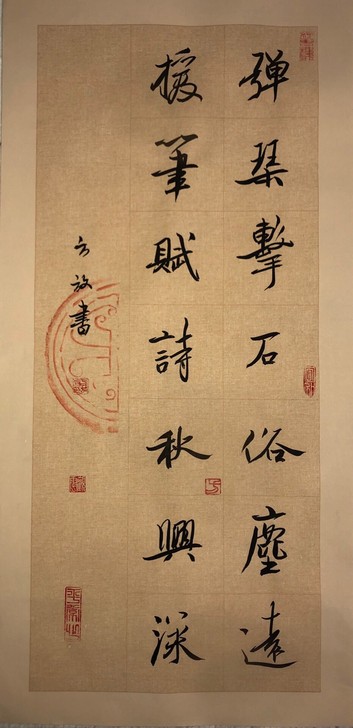 彈琴擊石俗塵遠
援筆賦詩秋興深
方放書